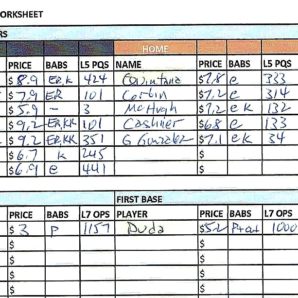 WORKSHEET
RS
HOME
PRICE BABS L5 PQS NAME PRICE BABS L5 PQS
$8.9 ER,K 424 Quintana $7.8 e 333
$7.9 ER 101 Corbin $7.2 e 314
$5.9 - 3 McHugh $7.2 ek 132
$9.2 ER,KK 101 Cashner $6.8 e 133
$9.2 ER,KK 351 G Gonzalez $7.1 ek 34
$6.7 k 245 $
$6.9 e 441 $
FIRST BASE
PRICE BABS L7 OPS PLAYER PRICE BABS L7 OPS
$3 P 1157 Duda $5.2 1000
$ $
$ $
$ $
$ $